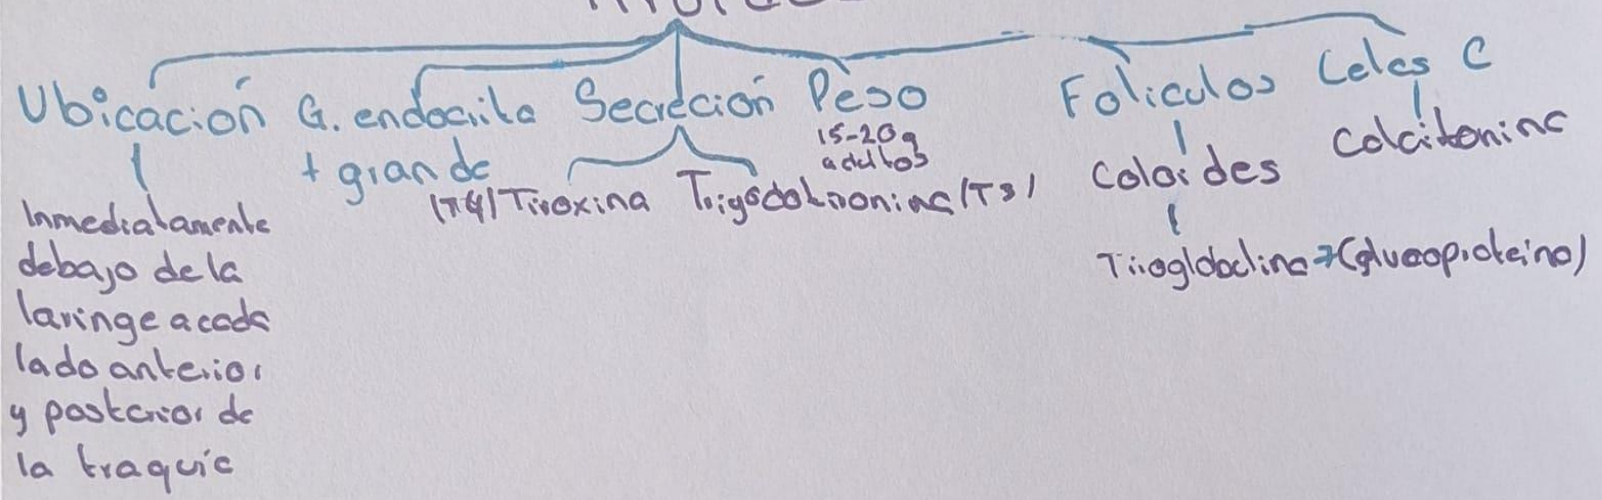 Ubicación
Inmediatamente
debajo de la
laringe a cada
lado anterior
y posterior de
la traquia
G. endocrila
+ grande
Secreción
(T4) Tiroxina
Triyodotironina (T3)
Peso
15-20g
adultos
Foliculos
Coloides
Tiroglobulina → (glucoproteina)
Celas C
Calcitonina